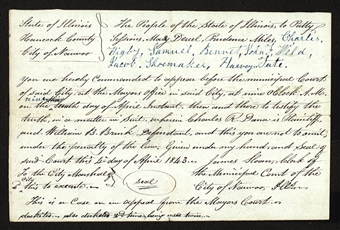 State of Illinois
Hancock County
City of Nauvoo
The People of the State of Illinois, to Polly
Jessions, Mary Duel, Prudence Miles, Charles
Higby, Samuel, Bennet, John Hild,
Jacob, Shoemaker, Harvey Tate.
You are hereby Commanded to appear before the municipal Court
of said City, at the Mayors office in said City, at nine oClock A.M.
on the day of April Instant, then and there to testify the
truth, in a matter in suit, wherein Charles R. Dana is Plaintiff
and William B. Brink Defendant, and this you are not to omit,
under the penalty of the Law, Given under my hand, and seal of
said Court this day of April 1843.
James Sloan, clerk of
the Municipal Court of the
City of Nauvoo, Illns.
To the City Marshal
to execute.
seal
This is a Case on an appeal from the Mayors Court